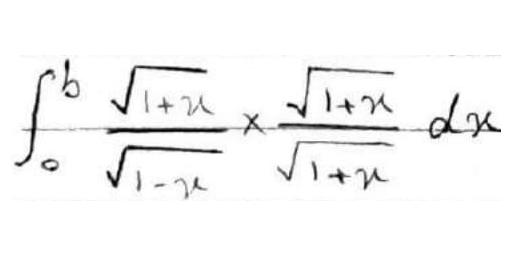 ∫₀ᵇ √(1+x)/√(1-x) × √(1+x)/√(1+x) dx